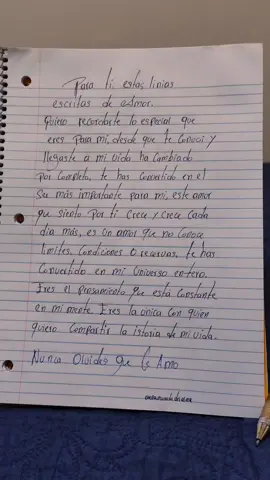 Para ti estas linias
escritas de Amor.
Quiero recordarte lo especial que
eres Para mi, desde que te Conoci y
llegaste a mi vida ha Cambiado
Por Completo, te has Convertido en el
Ser más importante para mi, este amor
que siento Por ti Crece y Crece Cada
día más, es Un amor que no Conoce
limites, Condiciones O reservas, te has
Convertido en mi Universo entero.
Eres el Pensamiento que esta Constante
en mi mente. Eres la única Con quien
quiero Compartir la Istoria de mi vida.
Nunca Olvides que te Amo